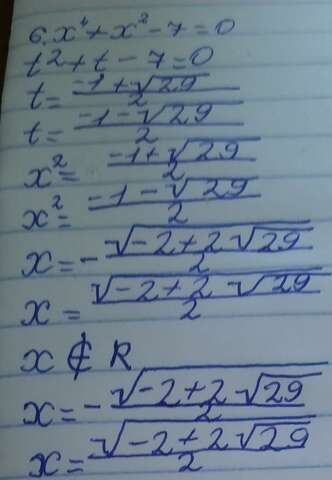 6. x⁴ + x² - 7 = 0
t² + t - 7 = 0
t = (-1 + √29)/2
t = (-1 - √29)/2
x² = (-1 + √29)/2
x² = (-1 - √29)/2
x = -√(-2 + 2√29)/2
x = √(-2 + 2√29)/2
x ∉ R
x = -√(-2 + 2√29)/2
x = √(-2 + 2√29)/2